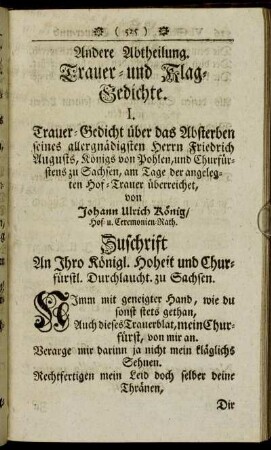 ( 525 )
Andere Abtheilung.
Trauer- und Klag-
Gedichte.
I.
Trauer-Gedicht über das Absterben
seines allergnädigsten Herrn Friedrich
Augusts, Königs von Pohlen, und Churfür-
stens zu Sachsen, am Tage der angeleg-
ten Hof-Trauer überreichet,
von
Johann Ulrich König/
Hof- u. Ceremonien-Rath.
Zuschrift
An Ihro Königl. Hoheit und Chur-
fürstl. Durchlaucht. zu Sachsen.
NImm mit geneigter Hand, wie du
sonst stets gethan,
Auch dieses Trauerblat, mein Chur-
fürst, von mir an.
Verarge mir darinn ja nicht mein kläglichs
Sehnen.
Rechtfertigen mein Leid doch selber deine
Thränen,
Dir